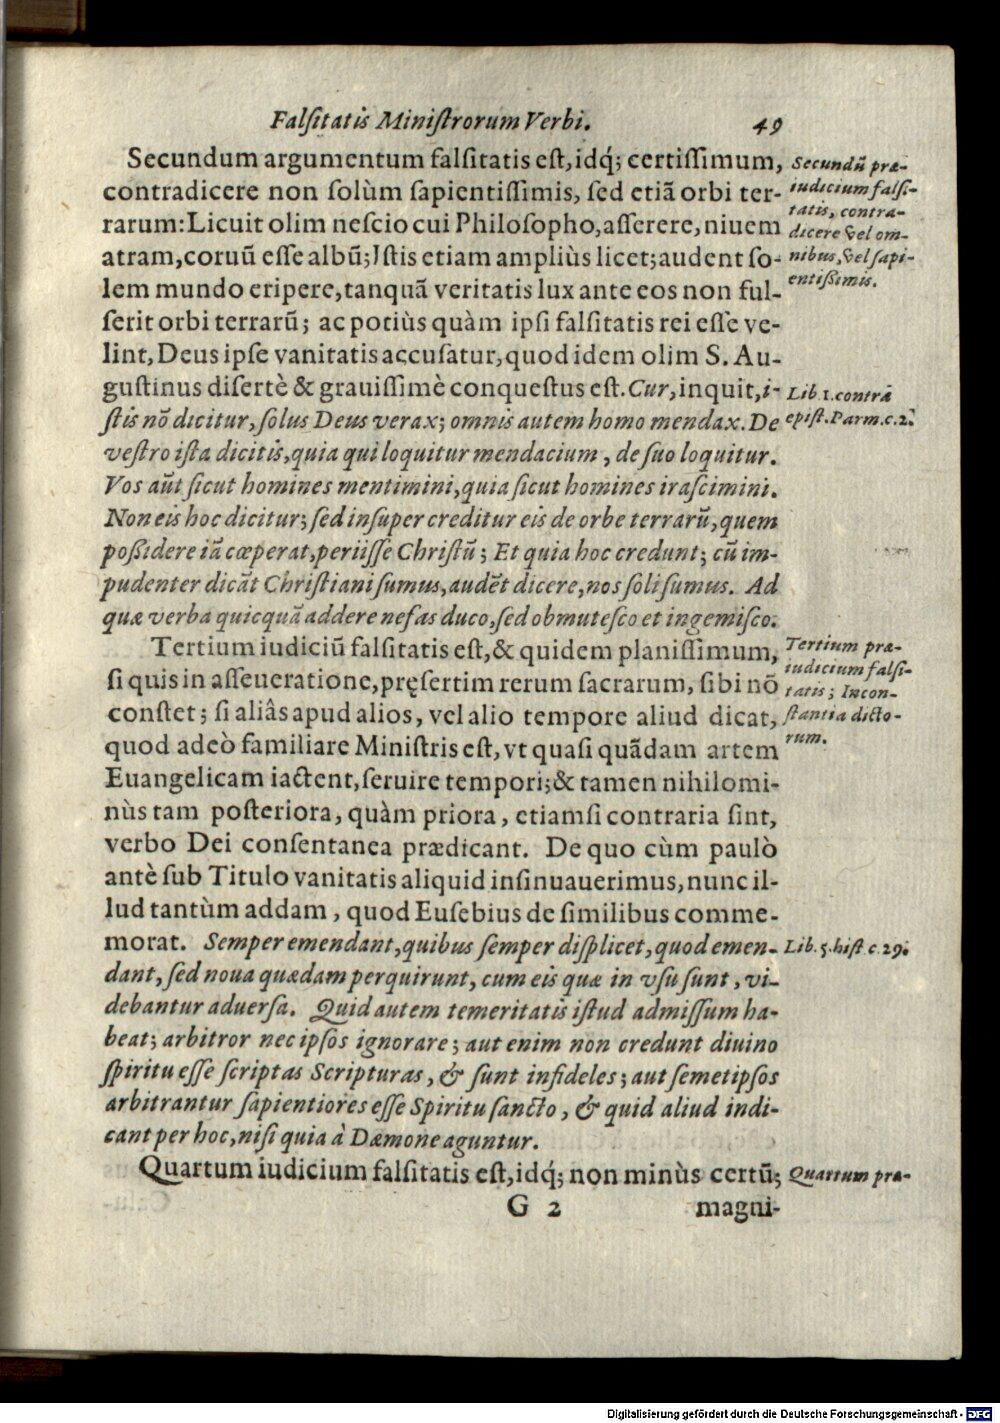 Falſitatis Miniſtrorum Verbi. 49
Secundum argumentum falſitatis eſt, idq́; certiſſimum,
contradicere non ſolùm ſapientiſſimis, ſed etiã orbi ter-
rarum: Licuit olim neſcio cui Philoſopho, aſſerere, niuem
atram, coruũ eſſe albũ; Iſtis etiam ampliùs licet; audent ſo-
lem mundo eripere, tanquã veritatis lux ante eos non ful-
ſerit orbi terrarũ; ac potiùs quàm ipſi falſitatis rei eſſe ve-
lint, Deus ipſe vanitatis accuſatur, quod idem olim S. Au-
guſtinus diſertè & grauiſſimè conqueſtus eſt. Cur, inquit, i-
ſtis nõ dicitur, ſolus Deus verax; omnis autem homo mendax. De
veſtro iſta dicitis, quia qui loquitur mendacium, de ſuo loquitur.
Vos aũt ſicut homines mentimini, quia ſicut homines iraſcimini.
Non eis hoc dicitur; ſed inſuper creditur eis de orbe terrarũ, quem
poßidere iã cœperat, periiſſe Chriſtũ; Et quia hoc credunt; cũ im-
pudenter dicãt Chriſtiani ſumus, audẽt dicere, nos ſoli ſumus. Ad
quæ verba quicquã addere nefas duco, ſed obmuteſco et ingemiſco.
Tertium iudiciũ falſitatis eſt, & quidem planiſſimum,
ſi quis in aſſeueratione, pręſertim rerum ſacrarum, ſibi nõ
conſtet; ſi aliâs apud alios, vel alio tempore aliud dicat,
quod adeò familiare Miniſtris eſt, vt quaſi quãdam artem
Euangelicam iactent, ſeruire tempori; & tamen nihilomi-
nùs tam poſteriora, quàm priora, etiamſi contraria ſint,
verbo Dei conſentanea prædicant. De quo cùm paulò
antè ſub Titulo vanitatis aliquid inſinuauerimus, nunc il-
lud tantùm addam, quod Euſebius de ſimilibus comme-
morat. Semper emendant, quibus ſemper diſplicet, quod emen-
dant, ſed noua quædam perquirunt, cum eis quæ in vſu ſunt, vi-
debantur aduerſa. Quid autem temeritatis iſtud admiſſum ha-
beat; arbitror nec ipſos ignorare; aut enim non credunt diuino
ſpiritu eſſe ſcriptas Scripturas, & ſunt infideles; aut ſemetipſos
arbitrantur ſapientiores eſſe Spiritu ſancto, & quid aliud indi-
cant per hoc, niſi quia à Dæmone aguntur.
Quartum iudicium falſitatis eſt, idq́; non minùs certũ;
G 2 magni-
Secundũ præ-
iudicium falſi-
tatis, contra-
dicere vel om-
nibus, vel ſapi-
entißimis.
Lib. 1. contrà
epiſt. Parm. c. 2.
Tertium præ-
iudicium falſi-
tatis; Incon-
ſtantia dicto-
rum.
Lib. 5. hiſt. c. 29.
Quartum præ-
Digitalisierung gefördert durch die Deutsche Forschungsgemeinschaft - DFG